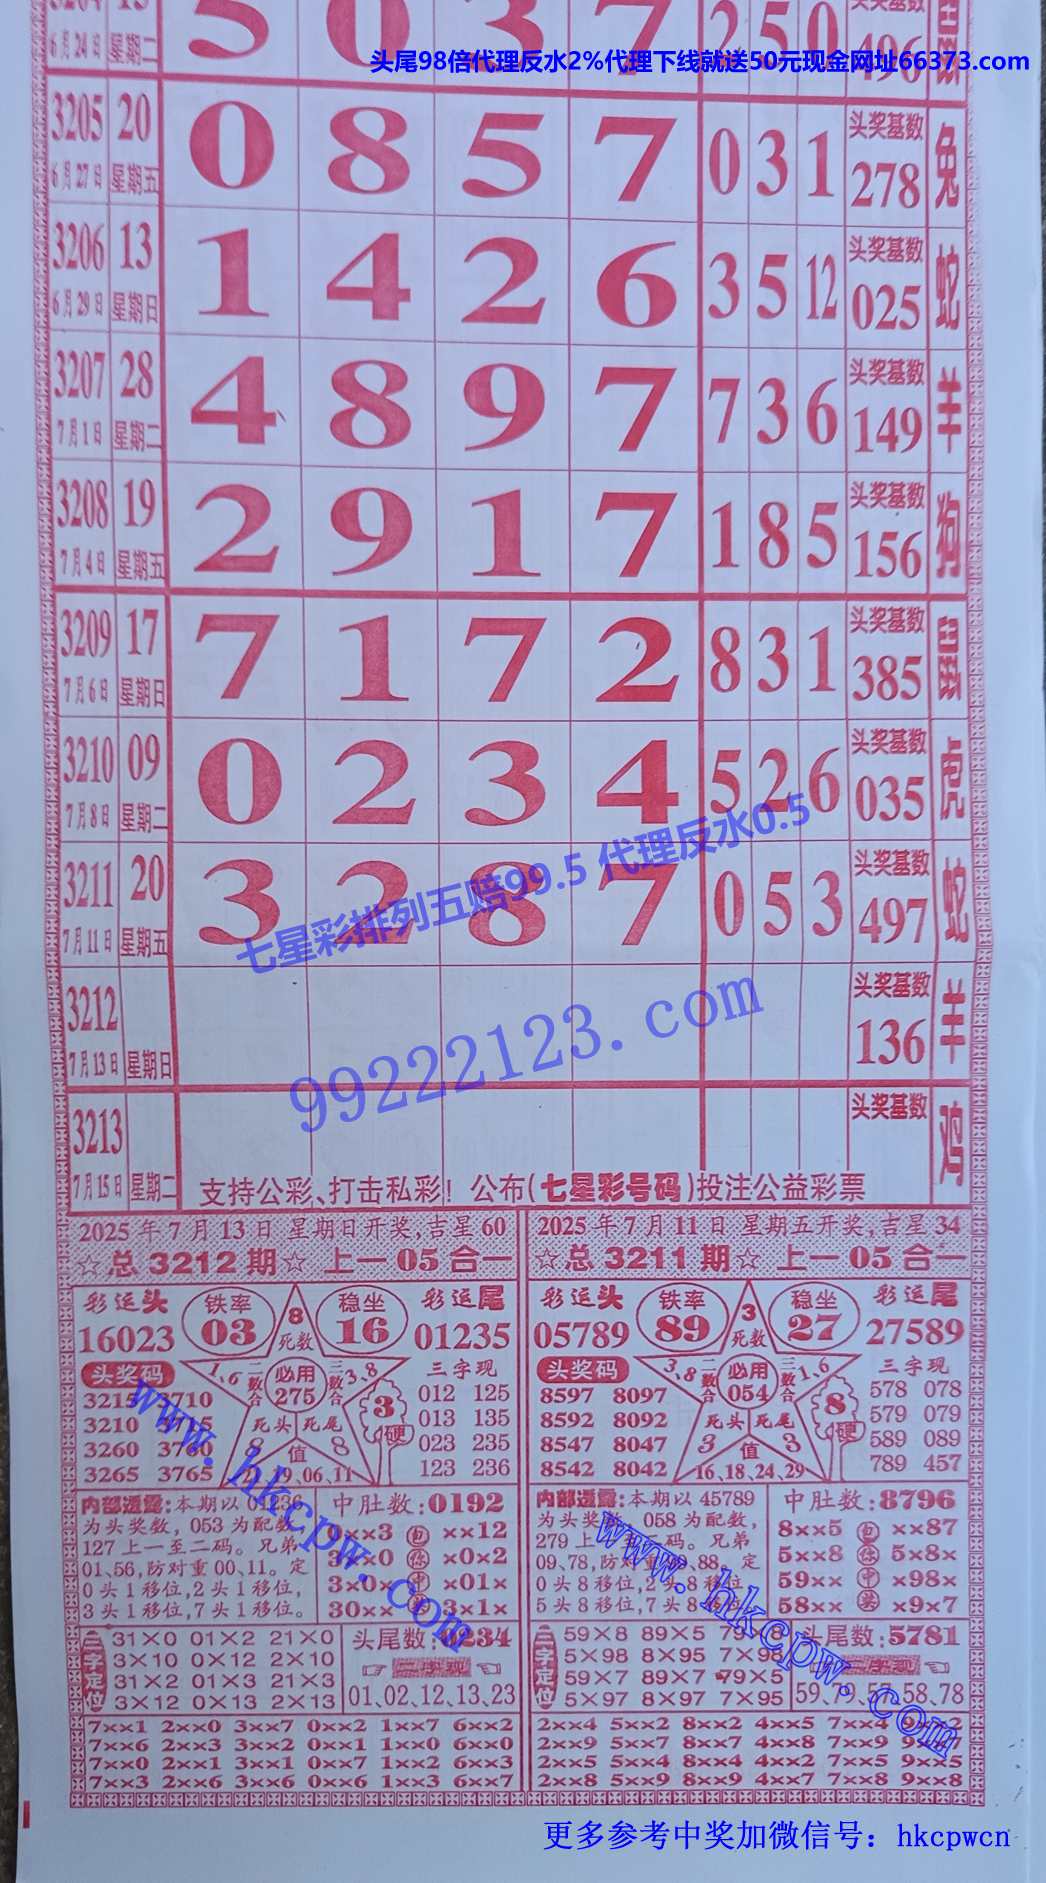 3204 13 5 0 3 7 2 5 0 头奖基数 496 鼠
6月24日 星期二
头尾98倍代理反水2%代理下线就送50元现金网址66373.com
3205 20 0 8 5 7 0 3 1 头奖基数 278 兔
6月27日 星期五
3206 13 1 4 2 6 3 5 12 头奖基数 025 蛇
6月29日 星期日
3207 28 4 8 9 7 7 3 6 头奖基数 149 羊
7月1日 星期二
3208 19 2 9 1 7 1 8 5 头奖基数 156 狗
7月4日 星期五
3209 17 7 1 7 2 8 3 1 头奖基数 385 鼠
7月6日 星期日
3210 09 0 2 3 4 5 2 6 头奖基数 035 虎
7月8日 星期二
3211 20 3 2 8 7 0 5 3 头奖基数 497 蛇
7月11日 星期五
七星彩排列五赔99.5 代理反水0.5
3212 头奖基数 136 羊
7月13日 星期日
99222123.com
3213 头奖基数 鸡
7月15日 星期二
支持公彩、打击私彩！公布(七星彩号码)投注公益彩票
2025年7月13日 星期日开奖,吉星60
☆总3212期☆ 上一05合一
彩运头 铁率 8 稳坐 彩运尾
16023 03 死数 16 01235
头奖码 1、6 二数合 必用 三数合 3、8 三字现
3215 3710 275 012 125
3210 死头 死尾 3 013 135
3260 3760 8 值 8 硬 023 235
3265 3765 9、06、11 123 236
内部透露:本期以01236
为头奖数, 053为配数,
127上一至二码。兄弟
01、56,防对重00、11。定
0头1移位,2头1移位,
3头1移位,7头1移位。
中肚数:0192
0××3 包 ××12
3××0 你 ×0×2
3×0× 中 ×01×
30×× 奖 3×1×
三字定位
31×0 01×2 21×0
3×10 0×12 2×10
31×2 01×3 21×3
3×12 0×13 2×13
头尾数:0234
二字现
01、02、12、13、23
7××1 2××0 3××7 0××2 1××7 6××2
7××6 2××3 3××2 0××1 1××0 6××0
7××0 2××1 3××1 0××7 1××2 6××3
7××3 2××6 3××6 0××6 1××3 6××7
www.hkcpw.com
2025年7月11日 星期五开奖,吉星34
☆总3211期☆ 上一05合一
彩运头 铁率 3 稳坐 彩运尾
05789 89 死数 27 27589
头奖码 3、8 二数合 必用 三数合 1、6 三字现
8597 8097 054 578 078
8592 8092 死头 死尾 8 579 079
8547 8047 3 值 3 硬 589 089
8542 8042 16、18、24、29 789 457
内部透露:本期以45789
为头奖数, 058为配数,
279上一至二码。兄弟
09、78,防对重 、88。定
0头8移位,2头8移位,
5头8移位,7头8移位。
中肚数:8796
8××5 包 ××87
5××8 你 5×8×
59×× 中 ×98×
58×× 奖 ×9×7
三字定位
59×8 89×5 79×8
5×98 8×95 7×98
59×7 89×7 79×5
5×97 8×97 7×95
头尾数:5781
二字现
59、79、57、58、78
2××4 5××2 8××2 4××5 7××4 9××2
2××9 5××7 8××7 4××8 7××9 9××7
2××5 5××4 8××4 4××2 7××5 9××5
2××8 5××9 8××9 4××7 7××8 9××8
www.hkcpw.com
更多参考中奖加微信号：hkcpwcn